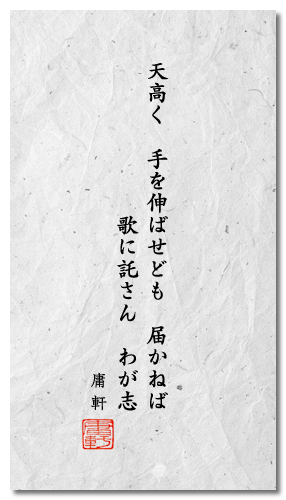 天高く　手を伸ばせども　届かねば
歌に託さん　わが志
庸軒
庸軒